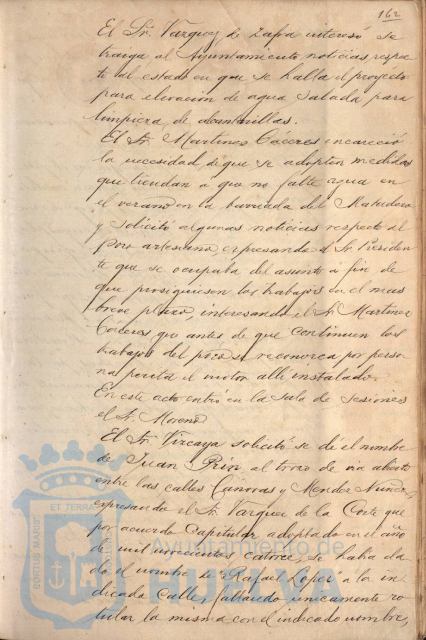 162
El Sr. Vazquez de Zafra interesó se
traiga al Ayuntamiento noticias respec-
to al estado en que se halla el proyecto
para elevación de agua salada para
limpieza de alcantarillas.
El Sr. Martinez Cáceres encareció
la necesidad de que se adopten medidas
que tiendan a que no falte agua en
el verano en la barriada del Matadero
y solicitó algunas noticias respecto al
pozo artesiano expresando el Sr. Presiden-
te que se ocupaba del asunto a fin de
que prosiguiesen los trabajos en el mas
breve plazo, interesando el Sr. Martinez
Cáceres que antes de que continuen los
trabajos del pozo se reconozca por perso-
na perita el motor alli instalado.
En este acto entró en la Sala de Sesiones
el Sr. Moreno
El Sr. Vizcaya solicitó se dé el nombre
de Juan Prin, al trozo de via abierto
entre las calles Cánovas y Mendez Nuñez,
expresando el Sr. Vazquez de la Corte que
por acuerdo Capitular adoptado en el año
de mil novecientos catorce, se habia da-
do el nombre de "Rafael Lopez" a la in-
dicada Calle, faltando unicamente ro-
tular la misma con el indicado nombre,
PORTUS MARIS ET TERRAE
Ayuntamiento de
HUELVA